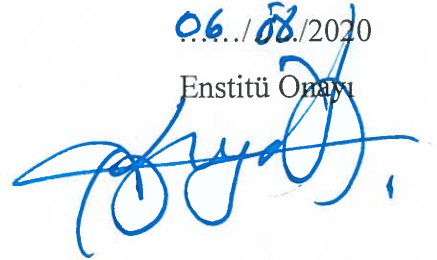 06/08/2020
Enstitü Onayı